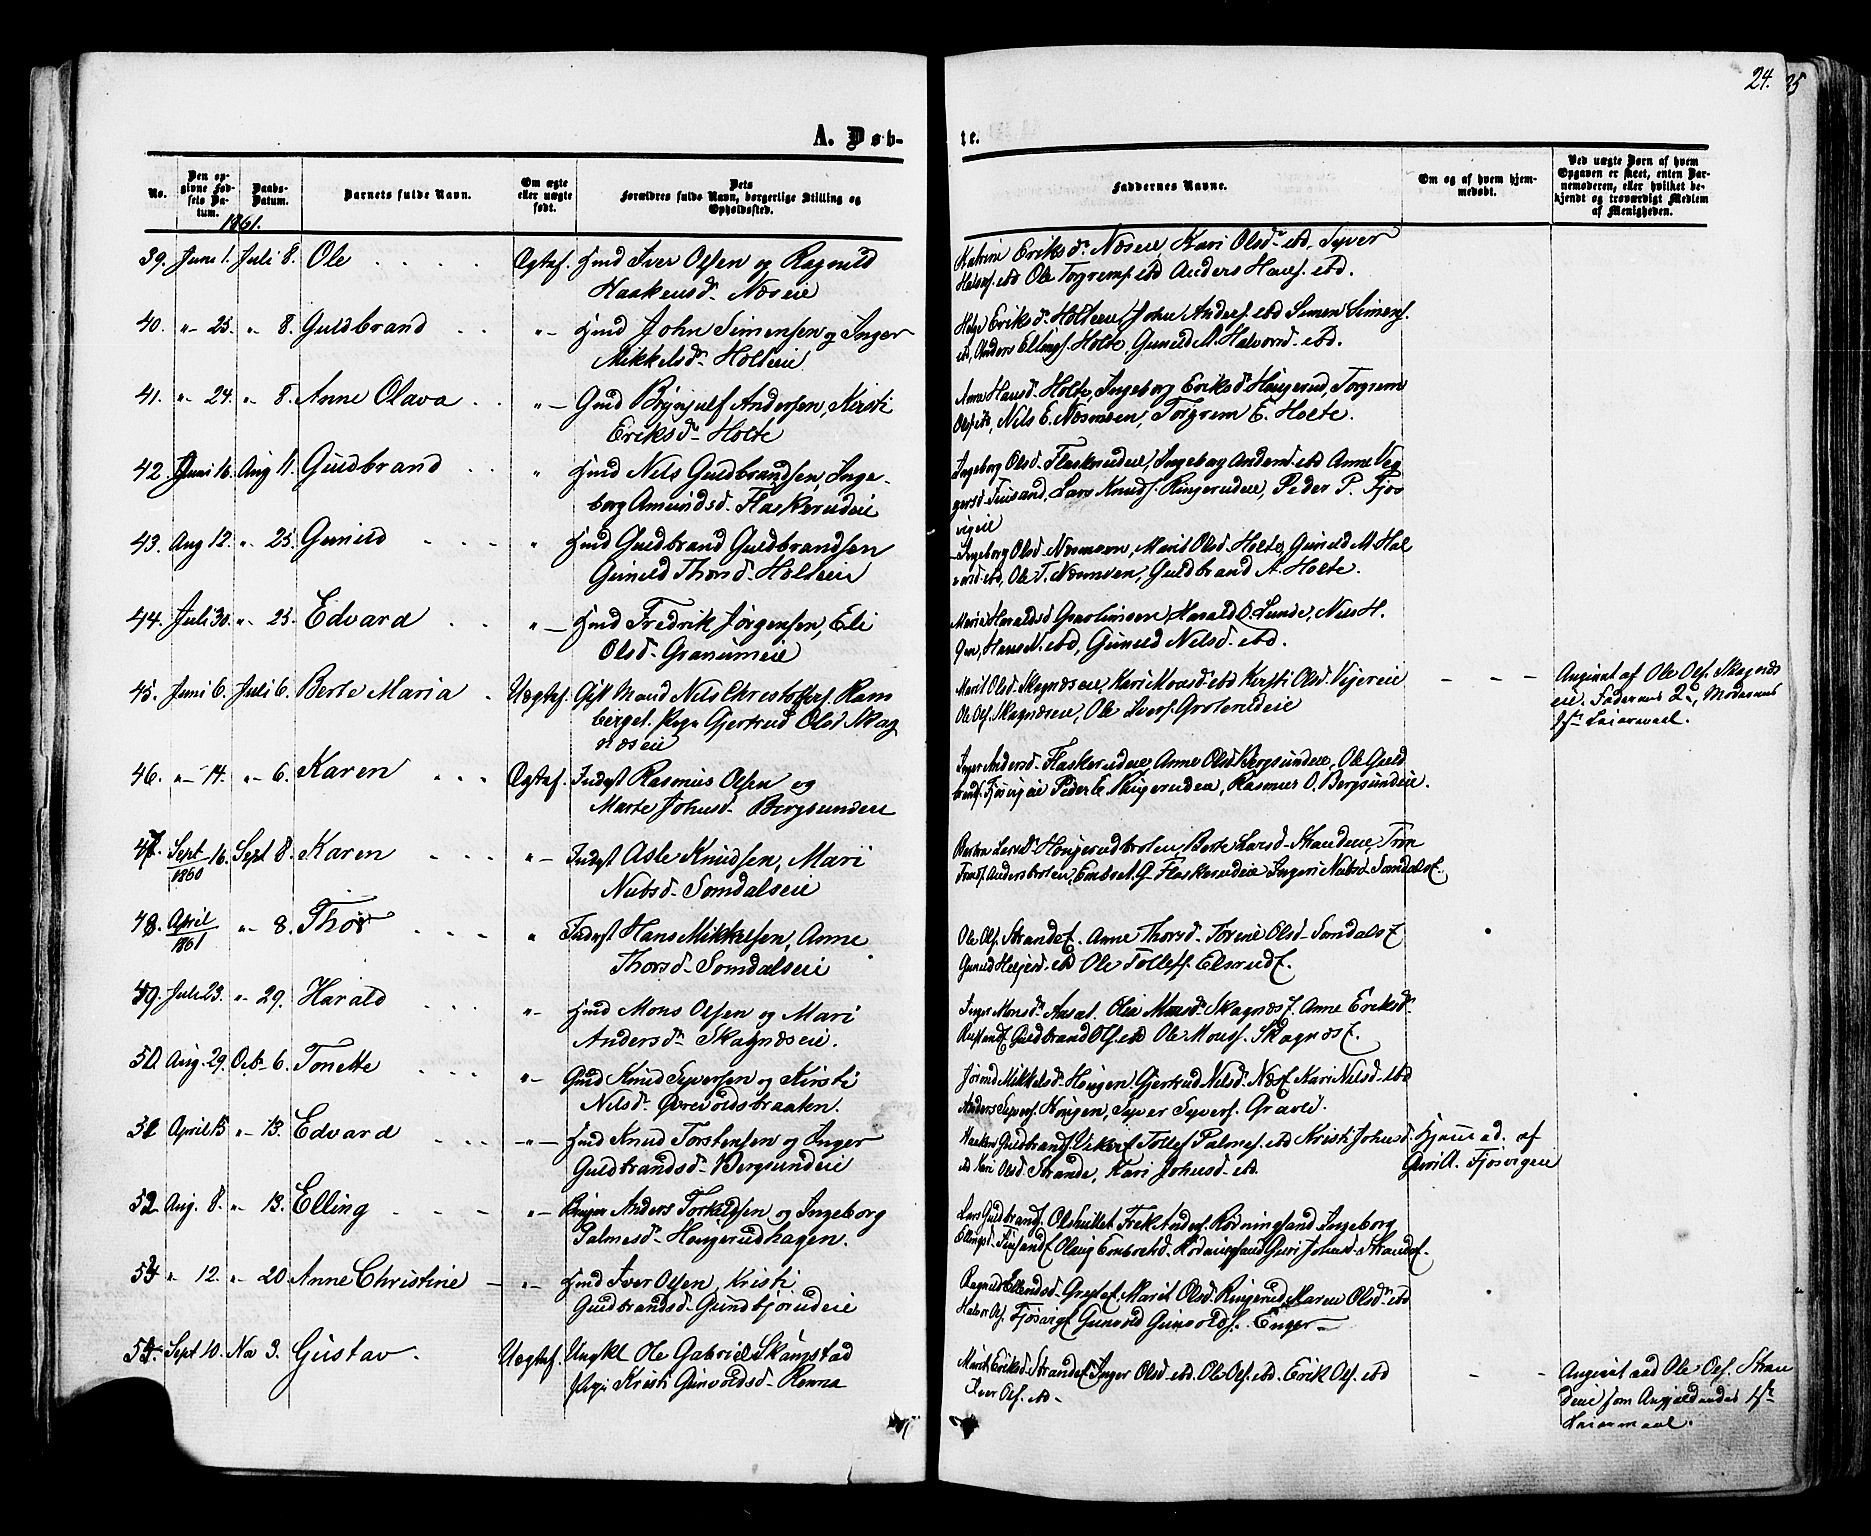 24. 25
A. Døb-
te.
No.
Den opgivne Fødsels Datum.
Daabs-Datum.
Barnets fulde Navn.
Om ægte eller uægte født.
Dets Forældres fulde Navn, borgerlige Stilling og Opholdssted.
Faddernes Navne.
Om og af hvem hjemmedøbt.
Ved uægte Børn af hvem Opgaven er skeet, enten Barnemoderen, eller hvilket bekjendt og troværdigt Medlem af Menigheden.
1861.
39. Juni 1. Juli 8. Ole Ægtef. Hmd Iver Olsen og Ragnild
Haakensd. Næseie
Katrine Eriksd. Næseie, Kari Olsd. ibd. Syver
ibd Ole Torgremsen ibd Anders Hans. ibd.
40. " 25. " 8. Guldbrand " Hmd John Simensen og Inger
Mikkelsd. Holteeie
Helge Eriksd. Holteeie, John Anders. ibd Simen Simens.
ibd, Anders Ellings. Holte, Gunild A. Halvorsd. ibd.
41. " 24. " 8. Anne Olava " Gmd Brynjulf Andersen, Kirsti
Eriksd. Holte
Anne Hansd. Holte, Ingeborg Eriksd. Haugerud, Torgrem
Nils E. Næsmoen, Torgrem E. Holte.
42. Juni 16. Aug 11. Guldbrand " Hmd Nels Guldbrandsen, Inge-
borg Amundsd. Flaskerudeie
Ingeborg Olsd. Flaskerudeie, Ingeborg Andersd. ibd Anne Veg
gersd. Finsand, Lars Knuds. Ringerudeie, Peder P. Fjøs
vigeie
43. Aug 12. " 25. Gunild " Hmd Guldbrand Guldbrandsen
Gunild Thorsd. Holteeie
Ingeborg Olsd. Næsmoen, Marit Olsd. Holte, Gunild M. Hal
vorsd. ibd, Ole T. Næsmoen, Guldbrand A. Holte.
44. Juli 30. " 25. Edvard " Hmd Fredrik Jørgensen, Eli
Olsd. Granumeie
Marie Haraldsd. Harald O. Lunde, Nils H.
Hans N. ibd, Gunild Nilsd. ibd.
45. Juni 6. Juli 6. Berte Maria Uægtef. Gift Mand Nils Christoffers. Ram
berget. Pige Gjertrud Olsd. Skag
næseie
Marit Olsd. Skagnæseie, Kari Monsd. ibd Kersti Olsd. Vijereie
Ole Ols. Skagnæseie, Ole Ivers. Groterudeie
Angivet af Ole Ols. Skagnæs
eie. Faderens 2d, Moderens
1ste Leiermaal.
46. " 14. " 6. Karen Ægtef. Indst Rasmus Olsen og
Marte Johnsd. Bergsundeie
Inger Andersd. Flaskerudeie, Anne Olsd. Bergsundeie, Ole Guld
brands. Fjøsvigeie Peder E. Ringerudeie, Rasmus O. Bergsundeie.
47. Sept 16. 1860 Sept 8. Karen " Indst Asle Knudsen, Mari
Nubsd. Somdalseie
Lersd. Hougerudbroten, Berte Larsd. Strandeie, Tron
Trons. Andersbroten, Embret G. Flaskerudeie Ingeri Nubsd. Somdalse.
48. April 1861 " 8. Thor " Indst Hans Mikkelsen, Anne
Thorsd. Somdalseie
Ole Ols. Strande. Anne Thorsd. Torine Olsd. Somdalse
Gunild Helgesd. ibd Ole Tollefs. Elsrude.
49. Juli 23. " 29. Harald " Hmd Mons Olsen og Mari
Andersd. Skagnæseie.
Inger Monsd. Aasat. Olia Monsd. Skagnæse. Anne Eriksd.
Guldbrand Ols. ibd Ole Mons. Skagnæse.
50 Aug. 29. Octb. 6. Tonette " Gmd Knud Syversen og Kirsti
Nilsd. Øvrevoldsbraaten.
Jørand Mikkelsd. Hougen. Gjertrud Nilsd. Næse Kari Nilsd. ibd
Anders Syvers. Hougen, Syver Syvers. Graveli.
51 April 15 " 13. Edvard " Hmd Knud Torstensen og Inger
Guldbrandsd. Bergsundeie
Haaken Guldbrands. Tollef Palmes. ibd Kristi Johnsd.
ibd Kari Olsd. Strande, Kari Johnsd. ibd.
Hjemmed. af
Guri A. Fjøsvigeie
52 Aug. 8. " 13. Elling " Anders Torkildsen og Ingeborg
Palmesd. Hougerudhagen.
Lars Guldbrands. Olshullet Frek Anders. Rødningsand, Ingeborg
Ellingsd. Finsande Olaug Embretsd. Rødningsand Guri Johnsd. Strande.
53 " 12. " 20 Anne Christine " Hmd Iver Olsen, Kristi
Guldbrandsd. Gundbjørudeie
Ragnild Erlandsd. Marit Olsd. Ringerud, Maren Olsd. ibd
Halvor Ols. Fjøsvige Gunvold Gunvolds. Enger
54. Sept 10. Nov 3. Gustav. Uægtef. Ungkl Ole Gabriel Skaugstad
Pige Kristi Gunvoldsd. Renna
Marit Eriksd. Strande, Inger Olsd. ibd. Ole Ols. ibd. Erik Ols. ibd
Iver Ols. ibd.
Angivet ved Ole Ols. Stran
deie som Angjeldendes 1ste
Leiermaal.